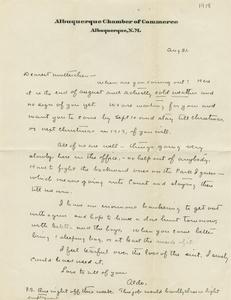 1918
Albuquerque Chamber of Commerce
Albuquerque, N.M.
Aug 31
Dearest mutterchen -
When are you coming out? Here
it is the end of august and actually cold weather and
no sign of you yet. We are waiting for you and
want you to come by Sept 10 and stay till christmas,
or next christmas in 1919, if you will.
All of us are well - things going very
slowly here in the office, - no help out of anybody.
Have to fight the backward ones on the Park I guess -
which means going into Court and staying there
till we win.
I have an enormous hankering to get out
with again and hope to have a dove hunt tomorrow
with and the boys. When you come better
bring a sleeping bag, or at least the
I feel fearful over the loss of the suit, I surely
could have used it.
Love to all of you
Aldo.
P.S. this week. The job would